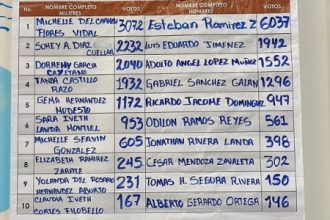 NOMBRE COMPLETO MUJERES VOTOS NOMBRE COMPLETO HOMBRES VOTOS
1 MICHELLE DEL CARMEN FLORES VIDAL 3072 Esteban Ramirez Z 6037
2 SUHEY A. DIAZ CUELLAR 2232 LUIS EDUARDO JIMENEZ 1942
3 DORHENY GARCIA CAYETANO 2040 ADOLFO ANGEL LOPEZ MUÑOZ 1552
4 TANIA CASTILLO RAZO 1932 GABRIEL SANCHEZ GALAN 1296
5 GEMA HERNANDEZ MODESTO 1172 RICARDO JACOME DOMINGUEZ 947
6 SARA IVETH LANDA MONTIEL 953 ODILON RAMOS REYES 561
7 MICHELLE SERVIN GONZALEZ 605 JONATHAN RIVERA LANDA 398
8 ELIZABETH RAMIREZ ZARATE 245 CESAR MENDOZA ZAVALETA 302
9 YOLANDA DEL ROSARIO HERNANDEZ ABURTO 231 TOMAS H. SEGURA RIVERA 150
10 CLAUDIA IVETH CORTES FILOBELLO 167 ALBERTO GERARDO ORTEGA 146